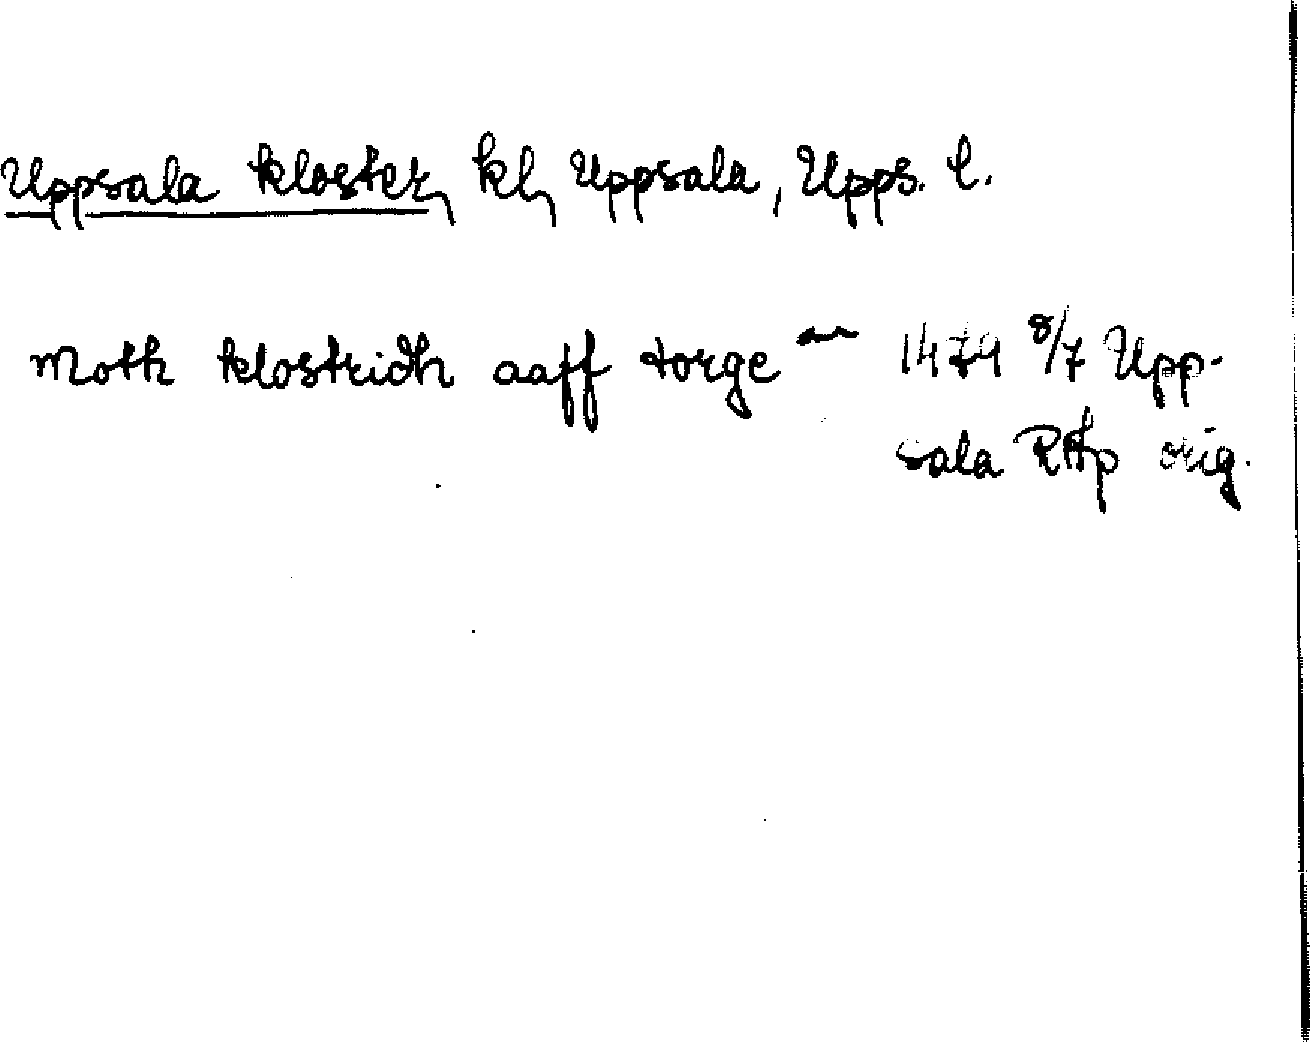 Uppsala kloster, kl, Uppsala, Upps. l.
moth klostridh aaff torge ~ 1479 8/7 Upp-
sala RAp orig.